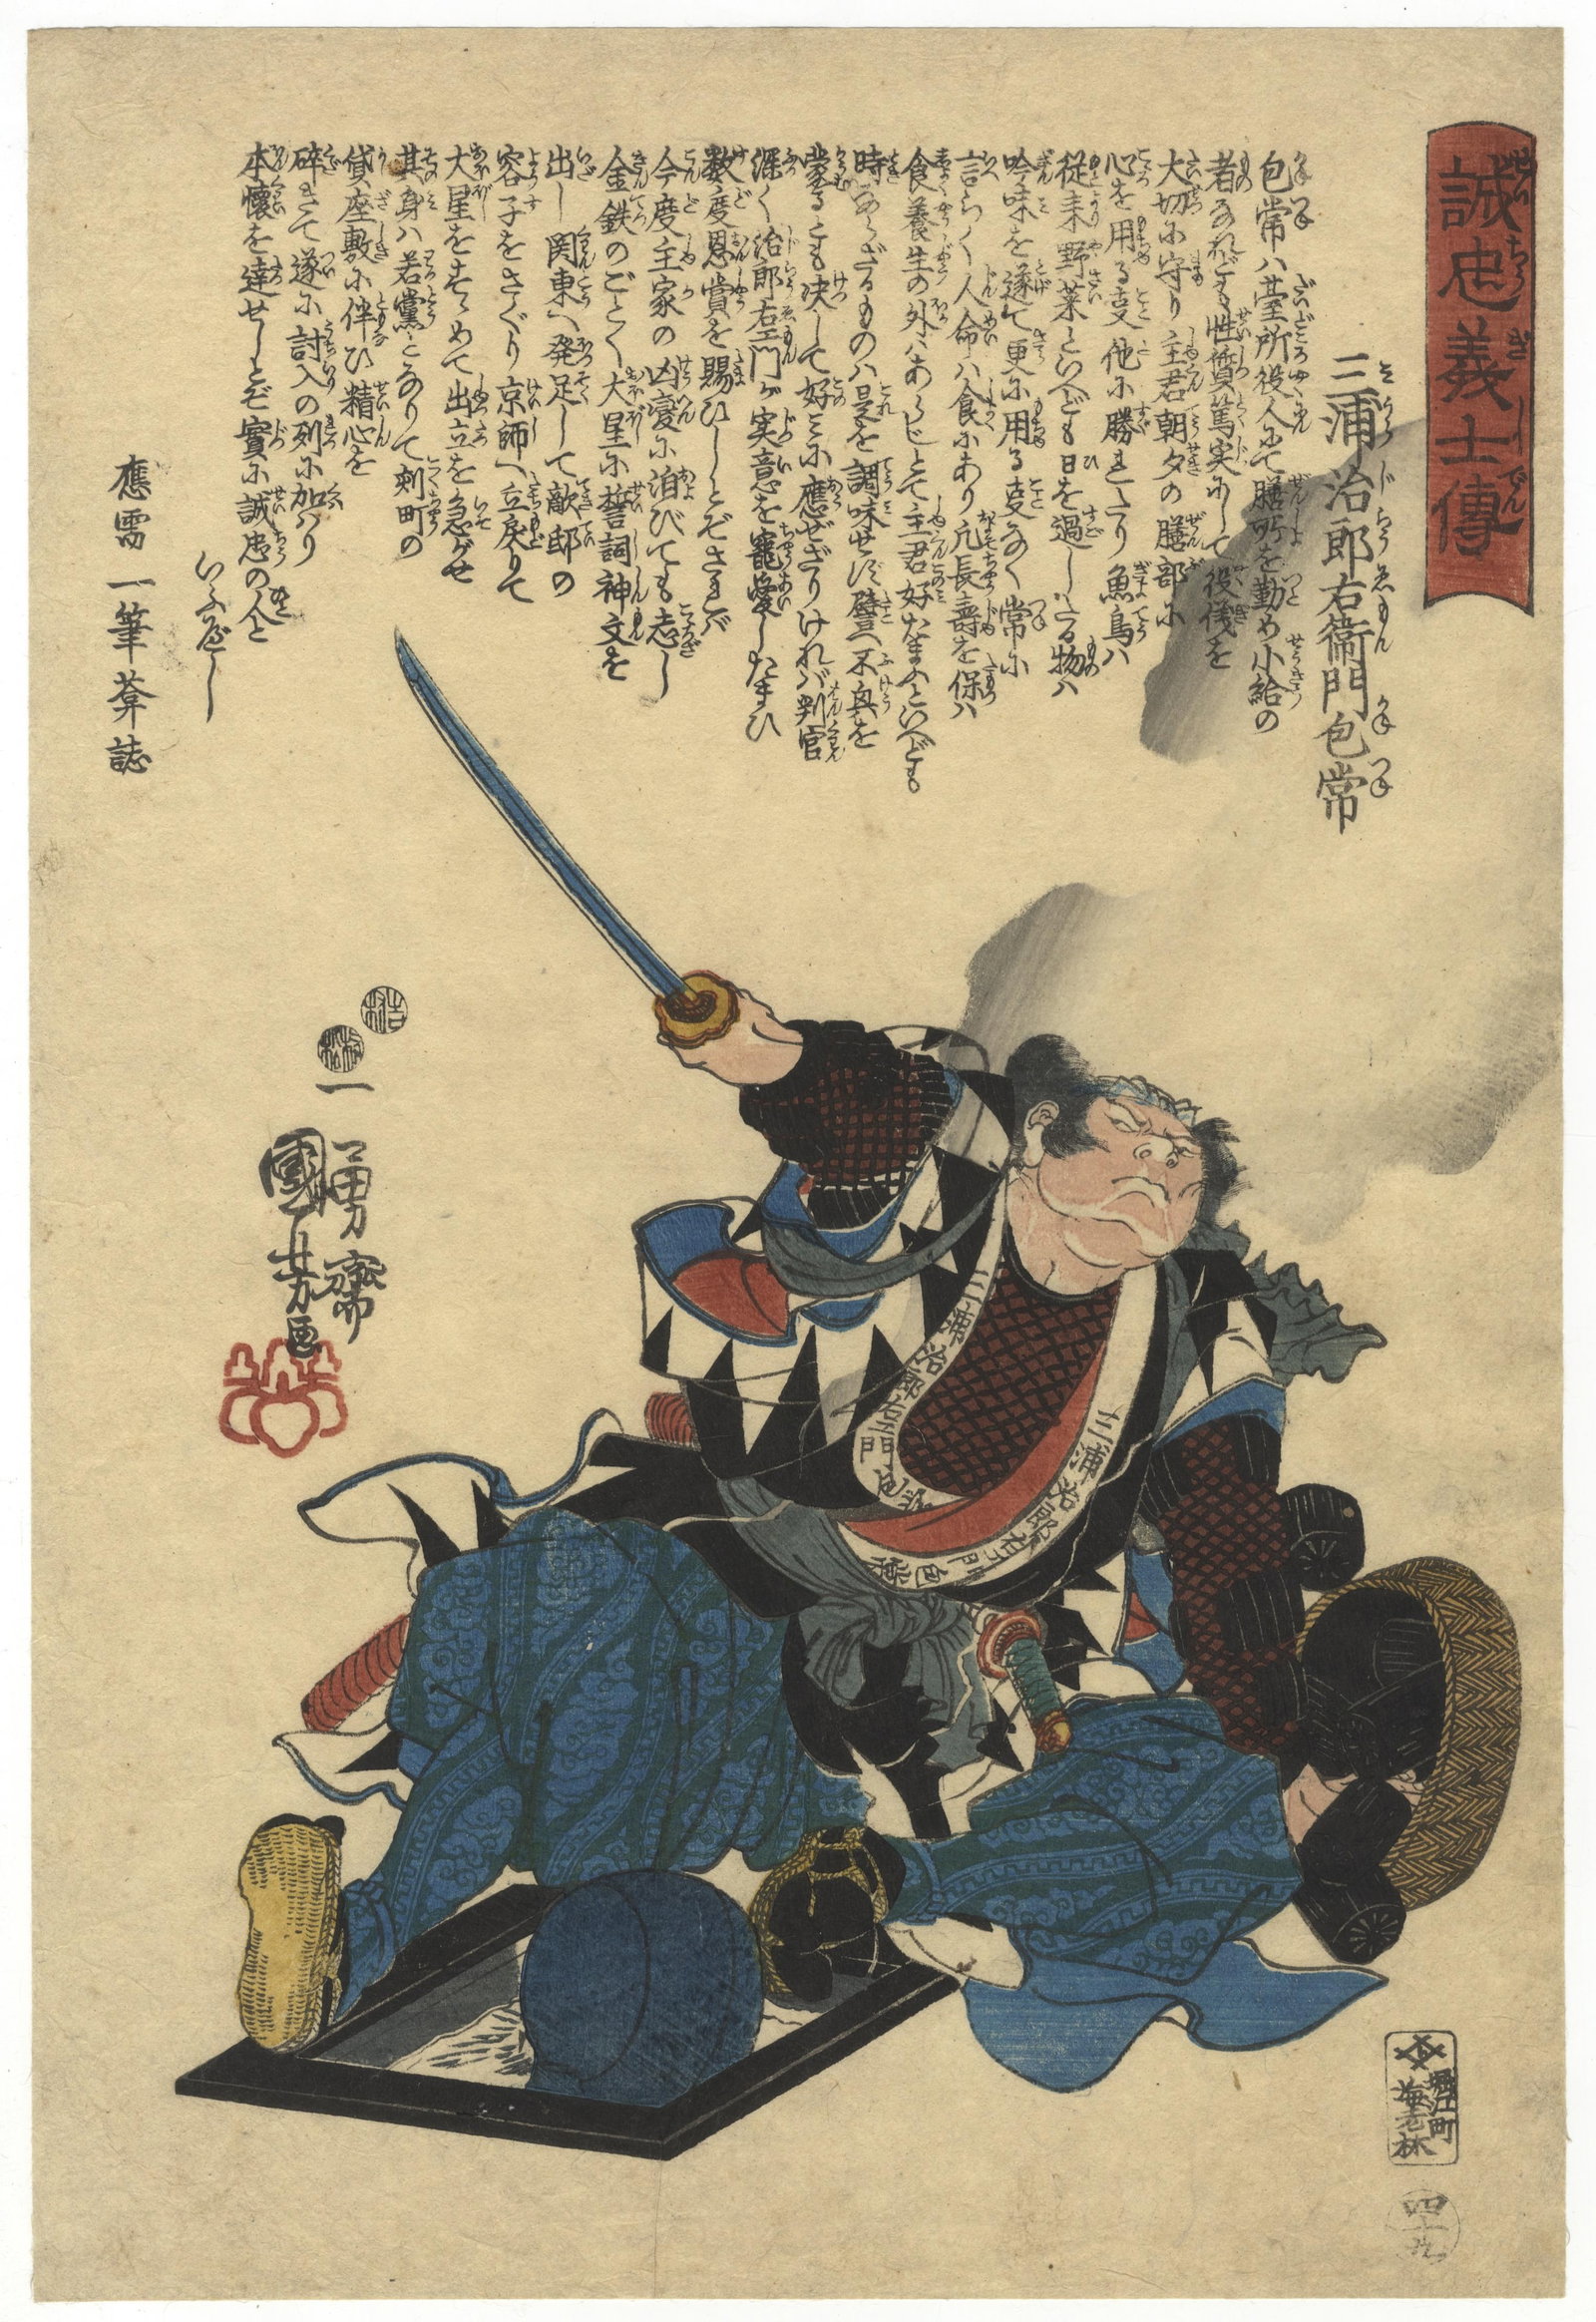 誠忠義士傳
三浦治郎右衛門包常
包常ハ䑓所役人にて膳所を勤め小給の
者なれども性質篤実にして役儀を
大切に守り主君朝夕の膳部に
心を用る支他に勝れたり魚鳥ハ
従来野菜といへども日を過したる物ハ
吟味を遂て更に用る支なく常に
言らく人命ハ食にあり凢長壽を保ハ
食養生の外ハあらじとて主君好たまふといへども
時ならざるものハ是を調味せず譬へ不興を
蒙るとも决して好ミに應ぜざりけれバ判官
深く治郎右エ門が実意を寵愛したまひ
数度恩賞を賜ひしとぞされバ
今度主家の凶変に泪びても志し
金鉄のごとく大星に誓詞神文を
出し関東へ発足して敵邸の
容子をさぐり京師へ立戻りて
大星をすゝめて出立を急がせ
其身ハ若黨となりて剣町の
貸座敷に伴ひ精心を
砕きて遂に討入の列に加ハり
本懐を達せしとぞ實に誠忠の人と
いふべし
應需 一筆葊誌
一勇齋
國芳画
三浦治郎右エ門包常
三浦治郎右エ門包常
堀江町
海老林
四十九